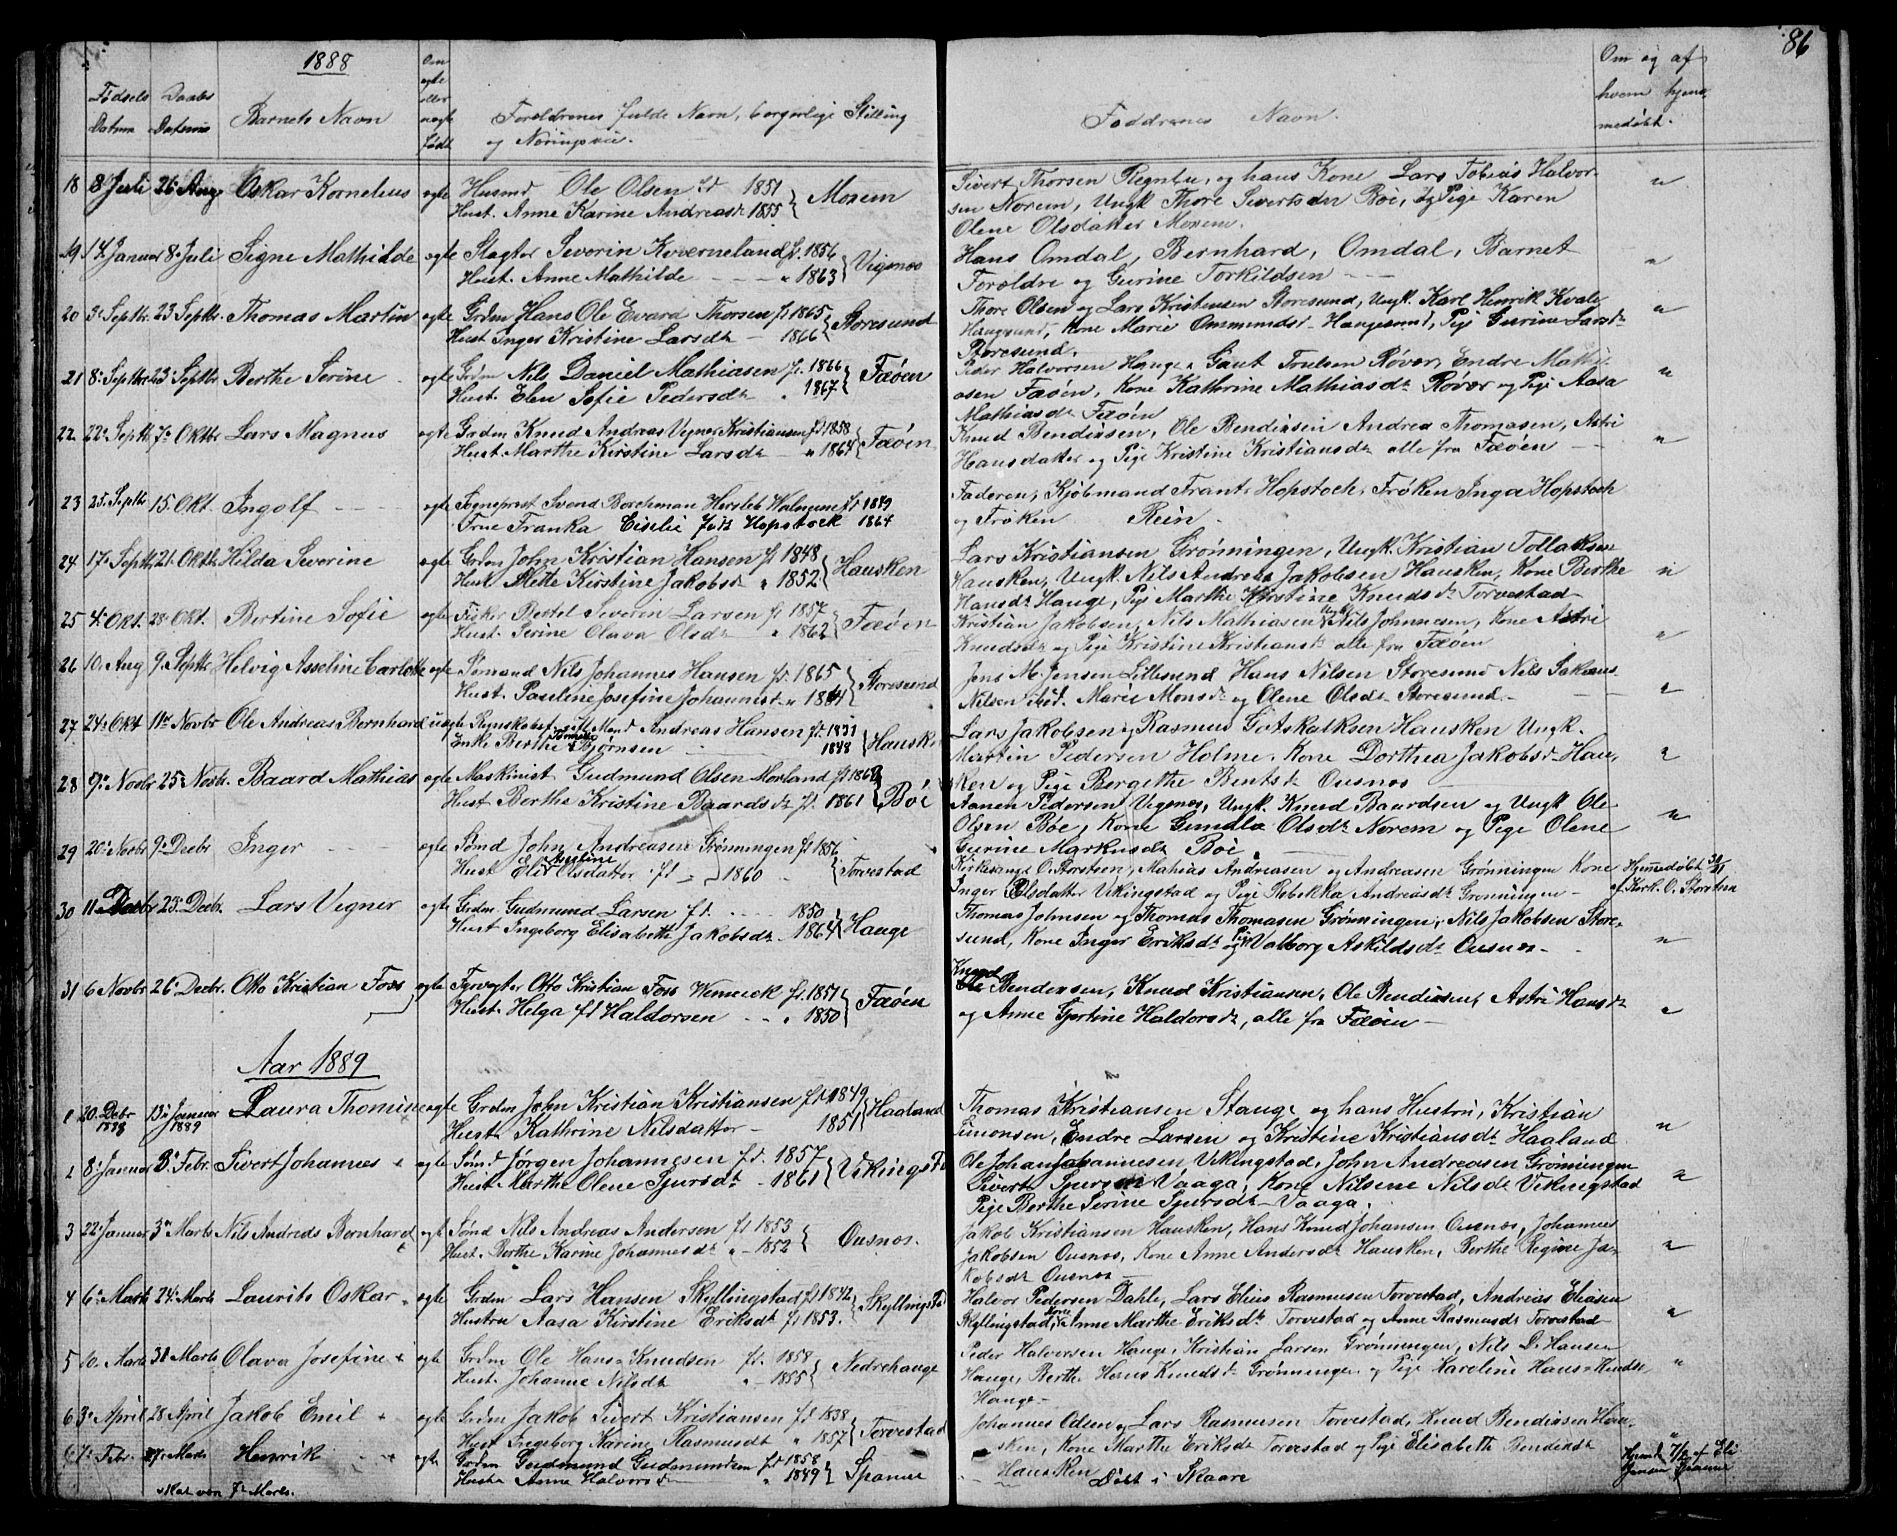 86
1888
Fødsels Datum
Daabs Datum
Barnets Navn
Om ægte eller uægte født
Forældrenes fulde Navn, borgerlige Stilling
og Næringsvei.
Faddrenes Navn.
Om og af
hvem hjem-
medøbt.
18 8 Juli 26 Aug Oskar Kornelius ægte Husmd Ole Olsen fd 1851
Hust. Anne Karine Andreasdt 1855 } Moxem
Sivert Thorsen og hans Kone Lars Tobias Halvor-
sen Norem, Ungk Thore Sivertsen Bøe, og Pige Karen
Olene Olsdatter Moxem.
19 14 Januar 8 Juli Signe Mathilde ægte Slagter Severin Kverneland fd. 1856
Hust. Anne Mathilde " 1863 } Vigsnes
Hans Omdal, Bernhard Omdal, Barnet
Forældre og Gurine Torkildsen
20 3 Septbr. 23 Septbr. Thomas Martin ægte Grdm Hans Ole Evard Thorsen fd 1865
Hust Inger Kristine Larsdt 1866 } Storesund
Thore Olsen og Lars Kristensen Storesund, Ungk. Karl Henrik Kvale
Haugesund, Kone Marie Ommundsdt Haugesund, Pige Gurine Larsdt
Storesund.
21 8 Septbr 23 Septbr Berthe Serine ægte Grdm Nils Daniel Mathiasen fd. 1866
Hust. Elen Sofie Pedersdt " 1867 } Fæøen
Peder Halvorsen Hauge, Gaut Trulsen Røvær, Endre Mathi-
asen Fæøen, Kone Kathrine Mathiasdt Røvær og Pige Aasa
Mathiasdt Fæøen
22 22 Septbr 7 Oktbr Lars Magnus ægte Grdm Knud Andreas Vegner Kristiansen fd 1858
Hust Marthe Kirstine Larsdt " 1864 } Fæøen
Knud Bendixsen, Ole Bendixsen Andrea Thomasen, Astri
Hansdatter og Pige Kristine Kristiansdt alle fra Fæøen
23 25 Septbr 15. Okt. Ingolf ægte Sogneprest Svend Borchman Hersleb Walnum fd 1849
Frue Franka Eiselie født Hopstock 1864
Faderen, Kjøbmand Frants Hopstock, Frøken Inga Hopstock
og Frøken Rein
24 17 Septbr 21. Oktbr Hilda Severine ægte Grdm John Kristian Hansen fd 1848
Hust Mette Kirstine Jakobsd " 1852 } Hausken
Lars Kristiansen Grønningen, Ungk. Kristian Tollaksen
Hausken, Ungk. Nils Andreas Jakobsen Hausken, Kone Berthe
Hansdt Hauge, Pige Marthe Kirstine Knudsdt Torvestad
25 4 Okt. 28 Okt. Bertine Sofie ægte Fisker Bertel Severin Larsen fd 1857
Hust. Serine Olava Olsdt " 1862 } Fæøen
Kristian Jakobsen, Nils Mathiasen Ungk Nils Johnnesen, Kone Astri
Knudsdt og Pige Kristine Kristiansdt alle fra Fæøen
26 10. Aug 9. Septbr Helvig Asseline Carlotte ægte Sømand Nils Johannes Hansen fd. 1865
Hust. Pauline Josefine Johannesdt " 1864 } Storesund
Jens M. Jensen Lillesund Hans Nilsen Storesund Nils Sakrias
Nilsen ibid. Marie Monsdt og Olene Olsdt Storesund
27 24 Okt 11 Novbr Ole Andreas Bernhard uægte Mand Andreas Hansen fd. 1851
Enke Berthe Bjørnsen 1848 } Hausken
Lars Jakobsen og Rasmus Gotskalksen Hausken Ungk.
Martin Pedersen Holme, Kone Dorthea Jakobsdt Haus-
ken og Pige Bergethe Bentsdt Ousnes
28 9 Novbr 25 Novbr. Baard Mathias ægte Maskinist Gudmund Olsen Morland fd 1862
Hust Berthe Kristine Baardsdt fd. 1861 } Bøe
Aanen Pedersen Vigsnes, Ungk. Knud Baardsen og Ungk Ole
Olsen Bøe, Kone Gunilla Olsdt Norem og Pige Olene
Gurine Markusdt Bøe
29 20 Novbr 9 Decbr Inger ægte Sømd John Andreasen Grønningen fd 1856
Hust Eli Asseline Olsdatter fd 1860 } Torvestad
Kirkesanger O. Storsteen, Mathias Andreasen og Andreasen Grønningen Kone
Inger Olsdatter Vikingstad og Pige Rebekka Andreasdt Grønningen
Hjemmedøbt 30/11
af Kirk. O. Storsteen
30 11 Decbr 23 Decbr. Lars Vigner ægte Grdm Gudmund Larsen fd. 1850
Hust Ingeborg Elisabeth Jakobsdt 1864 } Hauge
Thomas Johnsen og Thomas Thomasen Grønningen, Nils Jakobsen Store-
sund, Kone Inger Eriksdt og Pige Valborg Askildsdt Ousnes
31 6 Novbr 26 Decbr. Otto Kristian Foss ægte Fyrvogter Otto Kristian Foss Wennick fd. 1851
Hust. Helga fd Haldorsen " 1850 } Fæøen
Knud Bendixsen, Knud Kristiansen, Ole Bendixsen, Astri Hansdt
og Anne Gjertine Haldorsdt, alle fra Fæøen
Aar 1889
1 20 Decbr 1888 13 Januar 1889 Laura Thomine ægte Grdm John Kristian Kristiansen fd 1849
Hust Kathrine Nilsdatter 1851 } Haaland
Thomas Kristiansen Stange og hans Hustru, Kristian
Simonsen, Endre Larsen og Kristine Kristiansdt Haaland
2 8 Januar 3 Febr. Sivert Johannes ægte Sømd Jørgen Johannesen fd. 1857
Hust Marthe Olene Sjursdt 1861 } Vikingstad
Ole Johan Johannesen Vikingstad, John Andreasen Grønningen
Sivert Sjursen Vaaga, Kone Nilsine Nilsdt Vikingstad
Pige Berthe Serine Sjursdt Vaaga.
3 22 Januar 3 Marts Nils Andreas Bernhard ægte Sømd Nils Andreas Andersen fd 1853
Hust. Berthe Karine Johannesdt " 1852 } Ousnes.
Jakob Kristiansen Hausken, Hans Knud Johansen Ousnes, Johannes
Jakobsen Ousnes, Kone Anne Andersdt Hausken, Berthe Regine Ja-
kobsdt Ousnes
4 6 Marts 24 Marts Laurits Oskar ægte Grdm Lars Hansen Skyllingstad fd 1842
Hustru Aasa Kirstine Eriksdt fd 1853. } Skyllingstad
Halvor Pedersen Dahle, Lars Elias Rasmussen Torvestad, Andreas Eliasen
Skyllingstad, Kone Anne Marthe Eriksdt Torvestad og Anne Rasmusdt Torvestad
5 10. Marts 31 Marts Olava Josefine ægte Grdm Ole Hans Knudsen fd. 1858
Hust. Johanne Nilsdt " 1855 } Nedrehauge
Peder Halvorsen Hauge, Kristian Larsen Grønningen, Nils D. Hansen
Hauge, Berthe Hans Knudsdt Grønningen og Pige Karoline Hans Knudsdt
Hauge
6 3 April 28 April Jakob Emil ægte Grdm Jakob Sivert Kristiansen fd 1838
Hust Ingeborg Karine Rasmusdt " 1857 } Torvestad
Johannes Odsen og Lars Rasmussen Torvestad, Knud Bendixsen Hau-
sken, Kone Marthe Eriksdt Torvestad og Pige Elisabeth Bendixsdt
Hausken
6 1 Febr. Marts Henrik ægte Grdm Gudmund Gudmundsen fd 1858
Hust Anne Halvorsd " 1849 } Spanne
Døbt i Skaare
Hjemd 7/2 af Eli
Jensen Spanne